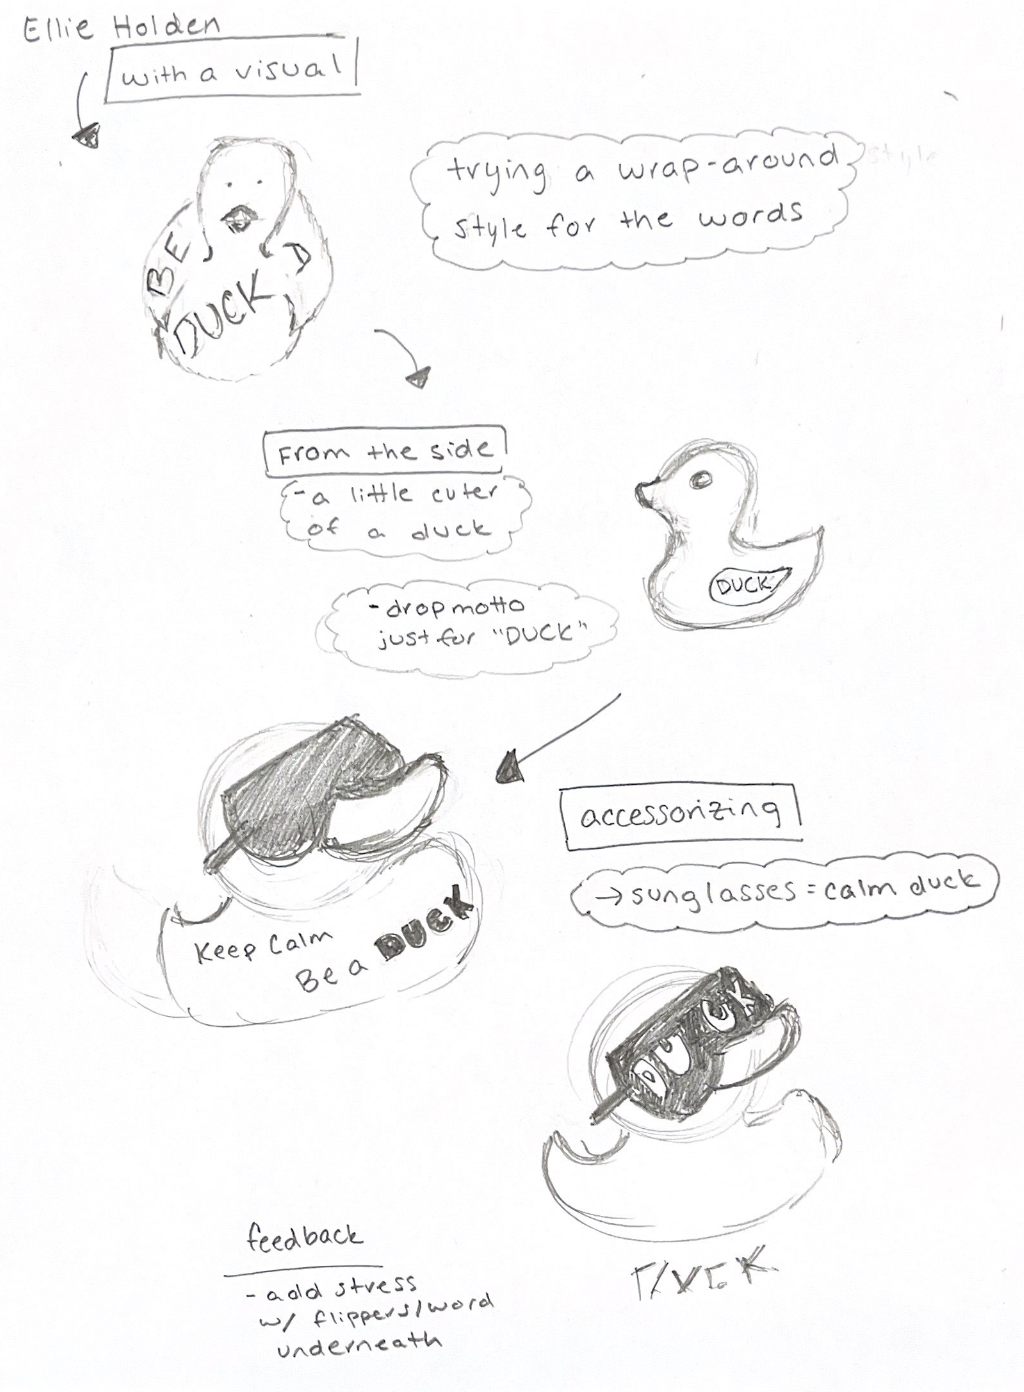 Ellie Holden
with a visual
trying a wrap-around style
style for the words
BE A
DUCK
From the side
- a little cuter
of a duck
DUCK
- drop motto
just for "DUCK"
accessorizing
→ sunglasses = calm duck
Keep Calm
Be a DUCK
DU CK
feedback
- add stress
w/ flippers/word
underneath